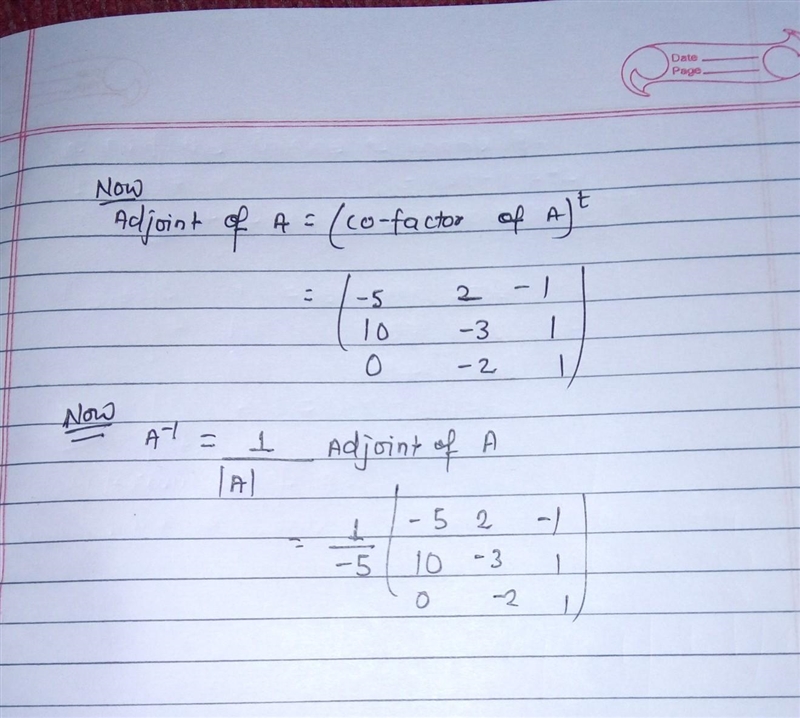 Date
Page
Now
Adjoint of A = (co-factor of A)^t
= ( -5 2 -1
10 -3 1
0 -2 1 )
Now
A^-1 = 1 Adjoint of A
|A|
= 1 ( -5 2 -1
-5 10 -3 1
0 -2 1 )